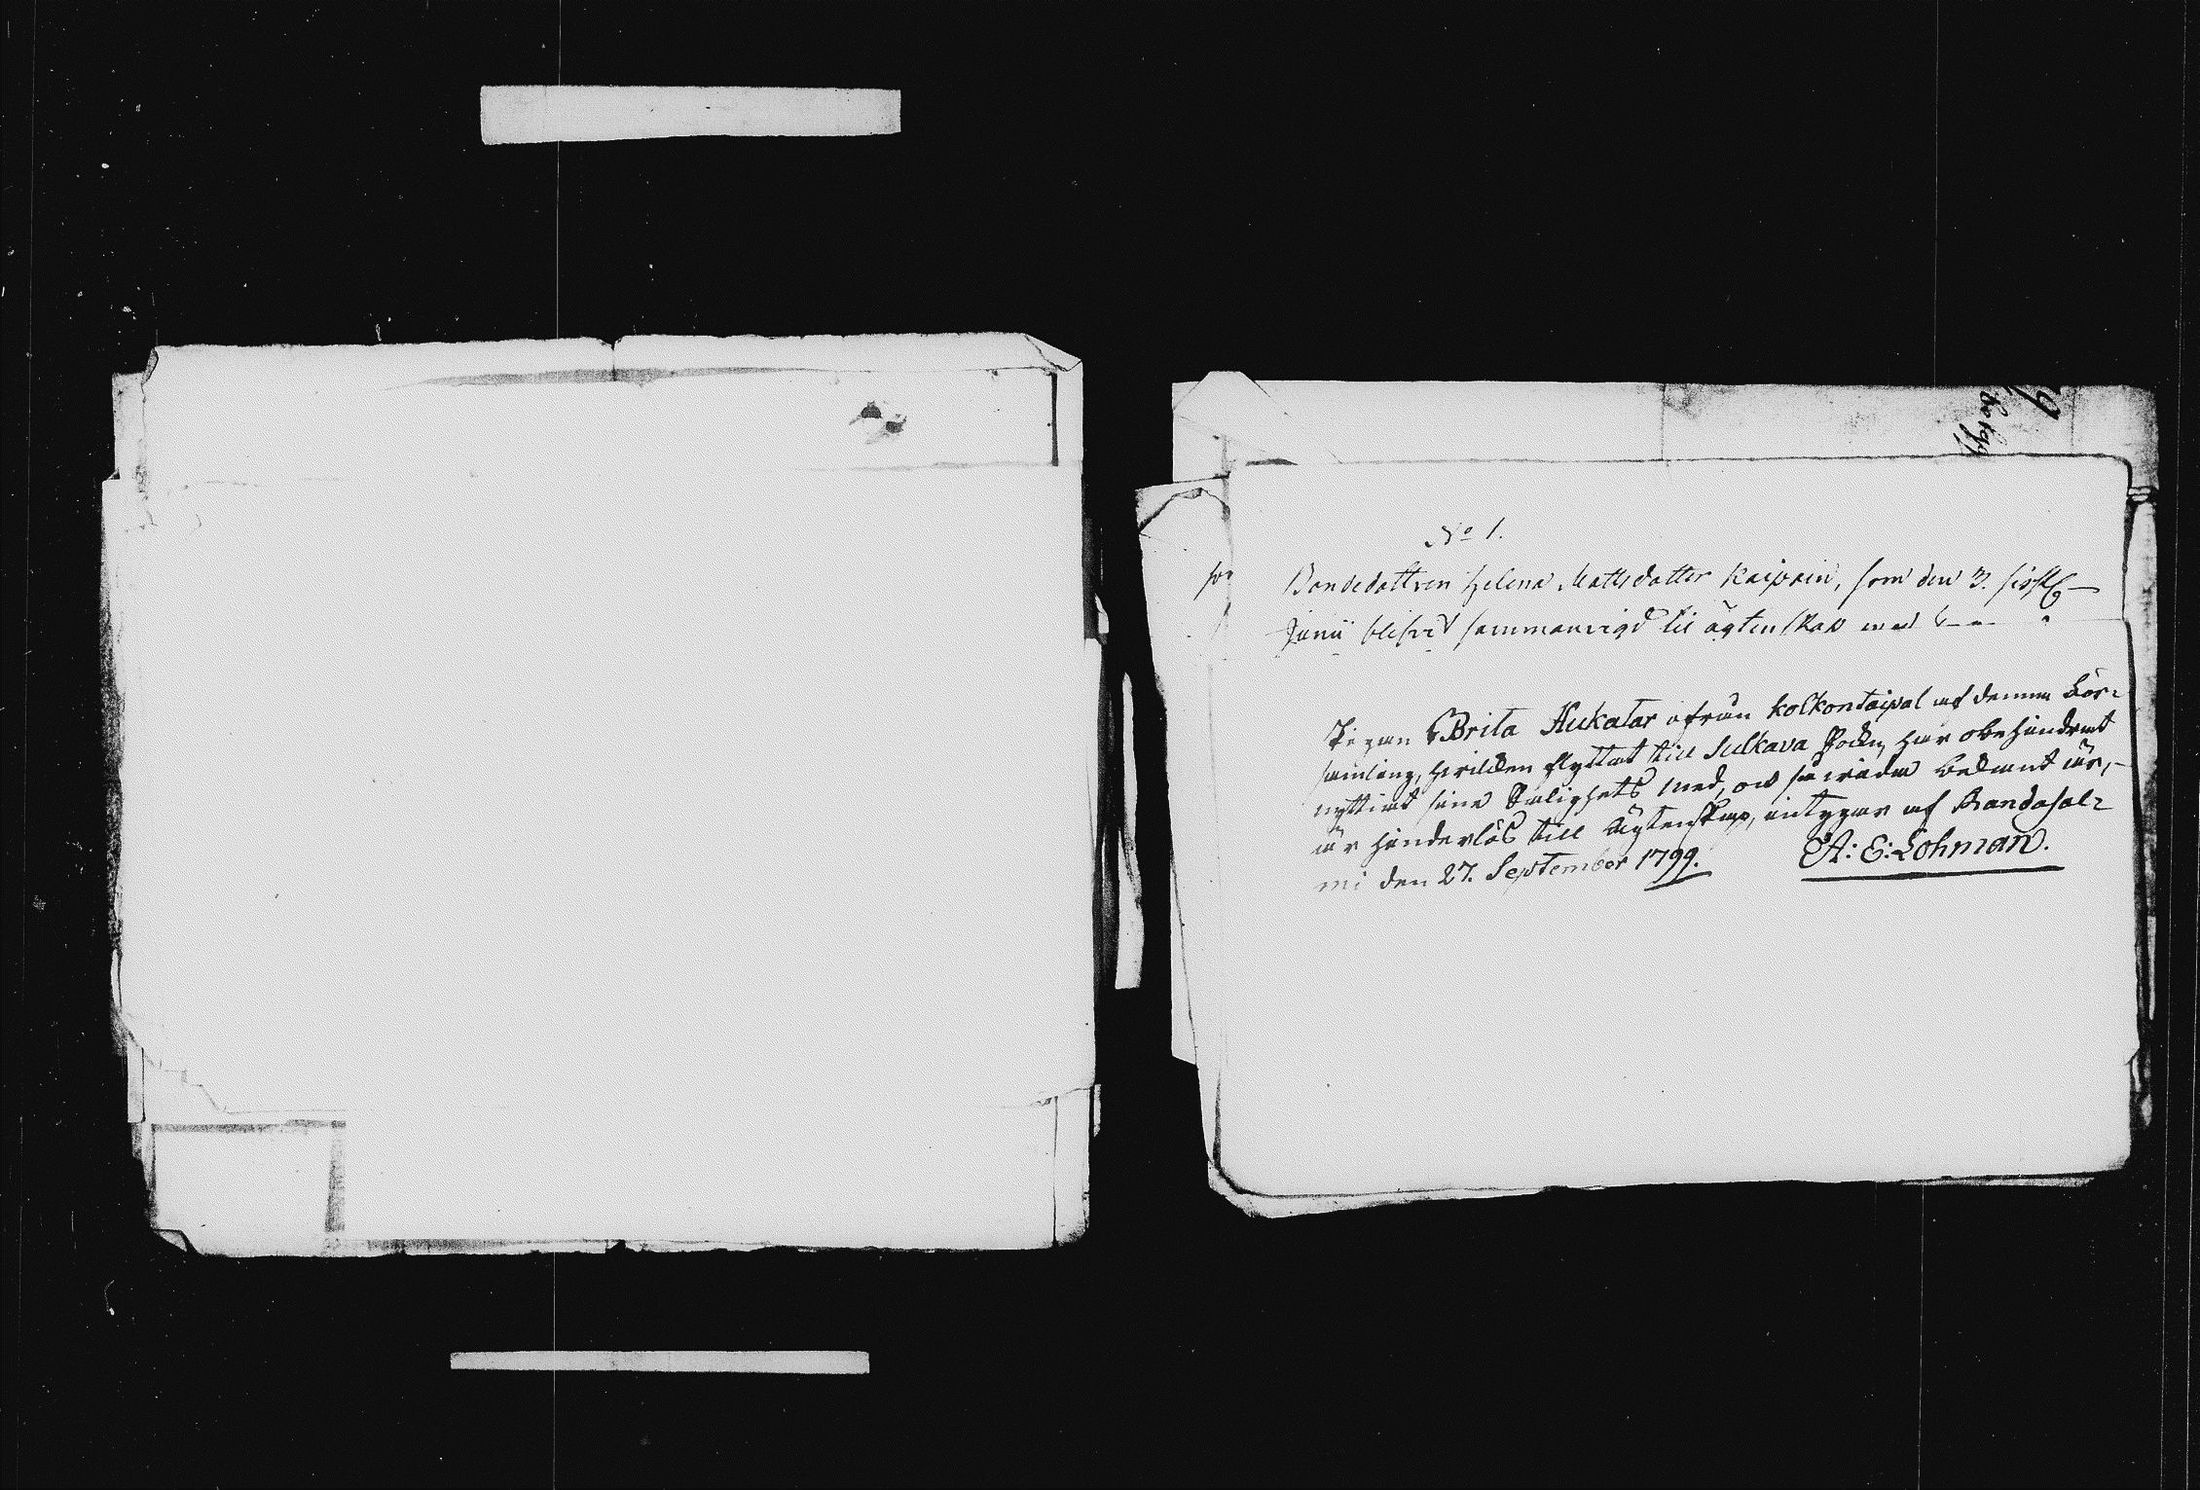 No 1.
Bondedottren Helena Mattsdotter Kaipain, som den 3. sistl.
Junii blifvit sammanvigd til ägtenskap med
Pigan Brita Hukatar ofrån Kolkontaipal af denna För-
samling, hvilcken flyttat till Sulkava Sockn, har obehindrat
nyttiat sina Salighets med, och så vida bekant är,
är hinderlös till Ägtenskap, intygar af Randasal-
mi den 27. September 1799. A: E: Lohman.